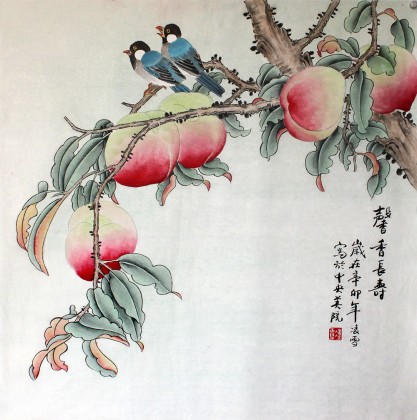 馨香長壽
歲在辛卯年凌雪
寫於中央美院